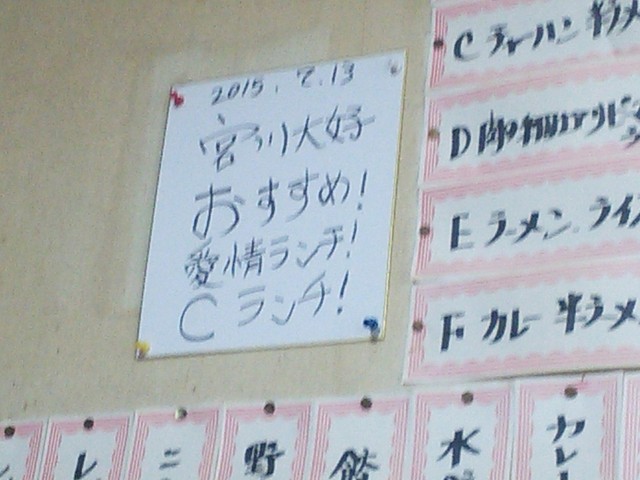 2015.7.13
宮川大好
おすすめ!
愛情ランチ!
Cランチ!
C チャーハン 半ラメ
D
E ラーメン.ライ
F カレー 半ラメ
レ
ニ
野
餃
水
カレー